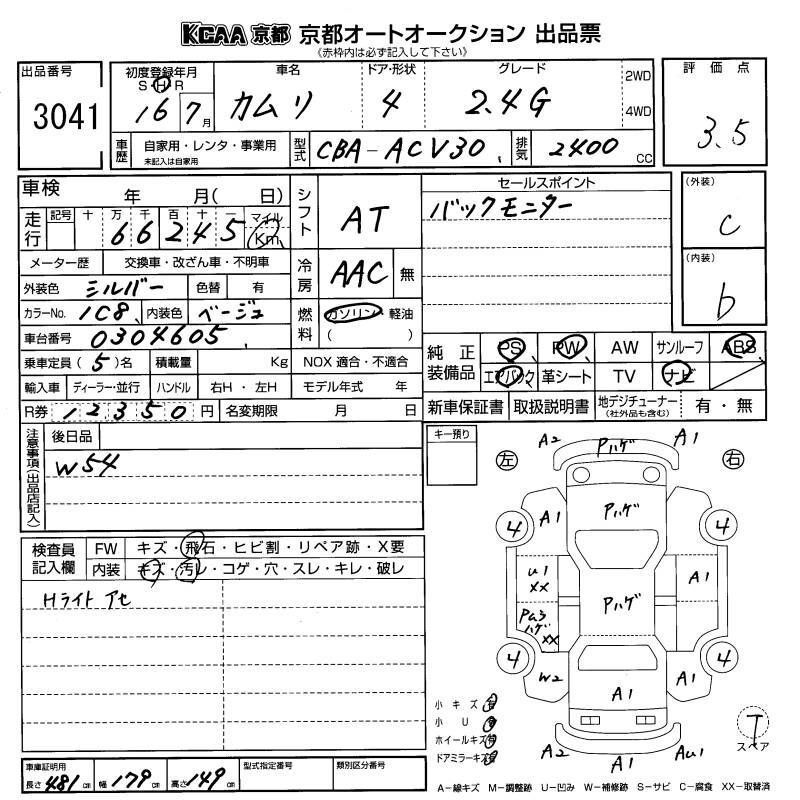 KCAA 京都 京都オートオークション 出品票
《赤枠内は必ず記入して下さい》
出品番号 3041
初度登録年月 S H R 16 7月
車名 カムリ
ドア・形状 4
グレード 2.4G
2WD
4WD
評価点 3.5
車歴 自家用・レンタ・事業用
未記入は自家用
型式 CBA-ACV30
排気 2400 CC
車検 年 月( 日)
走行 記号 十 万 千 百 十 一 マイル
66245 Km
メーター歴 交換車・改ざん車・不明車
外装色 シルバー 色替 有
カラーNo. 1C8 内装色 ベージュ
車台番号 0304605
乗車定員 (5)名 積載量 Kg NOX 適合・不適合
輸入車 ディーラー・並行 ハンドル 右H・左H モデル年式 年
R券 12350円 名変期限 月 日
シフト AT
冷房 AAC 無
燃料 ガソリン・軽油
( )
セールスポイント
バックモニター
(外装) C
(内装) b
純正装備品 PS PW AW サンルーフ ABS
エアバック 革シート TV ナビ
新車保証書 取扱説明書 地デジチューナー (社外品も含む) 有・無
注意事項(出品店記入)
後日品
W54
キー預り
検査員記入欄 FW キズ・飛石・ヒビ割・リペア跡・X要
内装 キズ・汚レ・コゲ・穴・スレ・キレ・破レ
Hライト アセ
左 右
A2 Pハゲ A1
4 A1 Pハゲ 4
U1 XX A1
Pハゲ
Pa3 ハゲ XX
4 W2 A1 A1 4
A2 A1 AU1
小キズ 有
小U 有
ホイールキズ 有
ドアミラーキズ 有
T スペア
車庫証明用 長さ 481cm 幅 179cm 高さ 149cm
型式指定番号 類別区分番号
A－線キズ M－調整跡 U－凹み W－補修跡 S－サビ C－腐食 XX－取替済